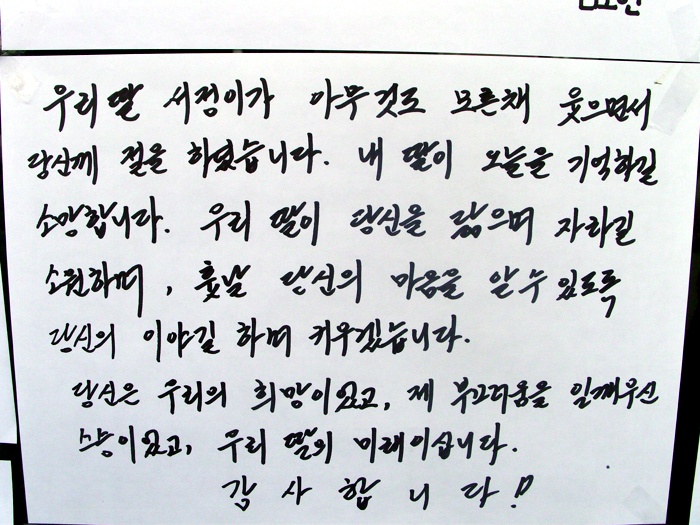 우리 딸 서정이가 아무것도 모른채 웃으면서
당신께 절을 하였습니다. 내 딸이 오늘을 기억하길
소망합니다. 우리 딸이 당신을 닮으며 자라길
소원하며, 훗날 당신의 마음을 알 수 있도록
당신의 이야길 하며 키우겠습니다.
당신은 우리의 희망이었고, 제 부끄러움을 일깨우신
스승이었고, 우리 딸의 미래이십니다.
감 사 합 니 다!